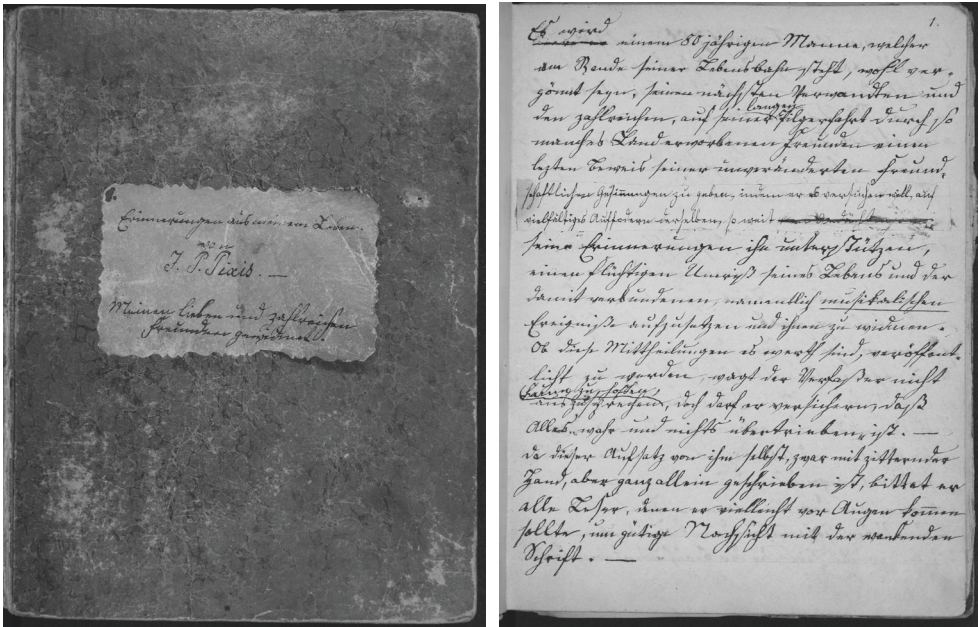 Erinnerungen aus meinem Leben.
von
J. P. Pixis. —
Meinen lieben und zahlreichen
Freunden gewidmet.
1.
Es wird
einem 80 jährigen Manne, welcher
am Rande seiner Lebensbahn steht, wohl ver-
gönnt seyn, seinen nächsten Verwandten und
langen
den zahlreichen, auf seiner Pilgerfahrt durch so
manches Land erworbenen Freunden einen
letzten Beweis seiner unveränderten freund-
schaftlichen Gesinnungen zu geben, indem er es versuchen will, auf
vielfältiges Auffodern derselben, so weit
seine Erinnerungen ihn unterstützen,
einen flüchtigen Umriß seines Lebens und der
damit verbundenen, namentlich musikalischen
Ereigniße aufzusetzen und ihnen zu widmen.
Ob diese Mittheilungen es werth sind, veröffent-
licht zu werden, wagt der Verfaßer nicht
kaum zu hoffen
auszusprechen, doch darf er versichern, daß
Alles wahr und nichts übertrieben ist. —
Da dieser Aufsatz von ihm selbst, zwar mit zitternder
Hand, aber ganz allein geschrieben ist, bittet er
alle Leser, denen er vielleicht vor Augen kommen
sollte, um gütige Nachsicht mit der wankenden
Schrift. —